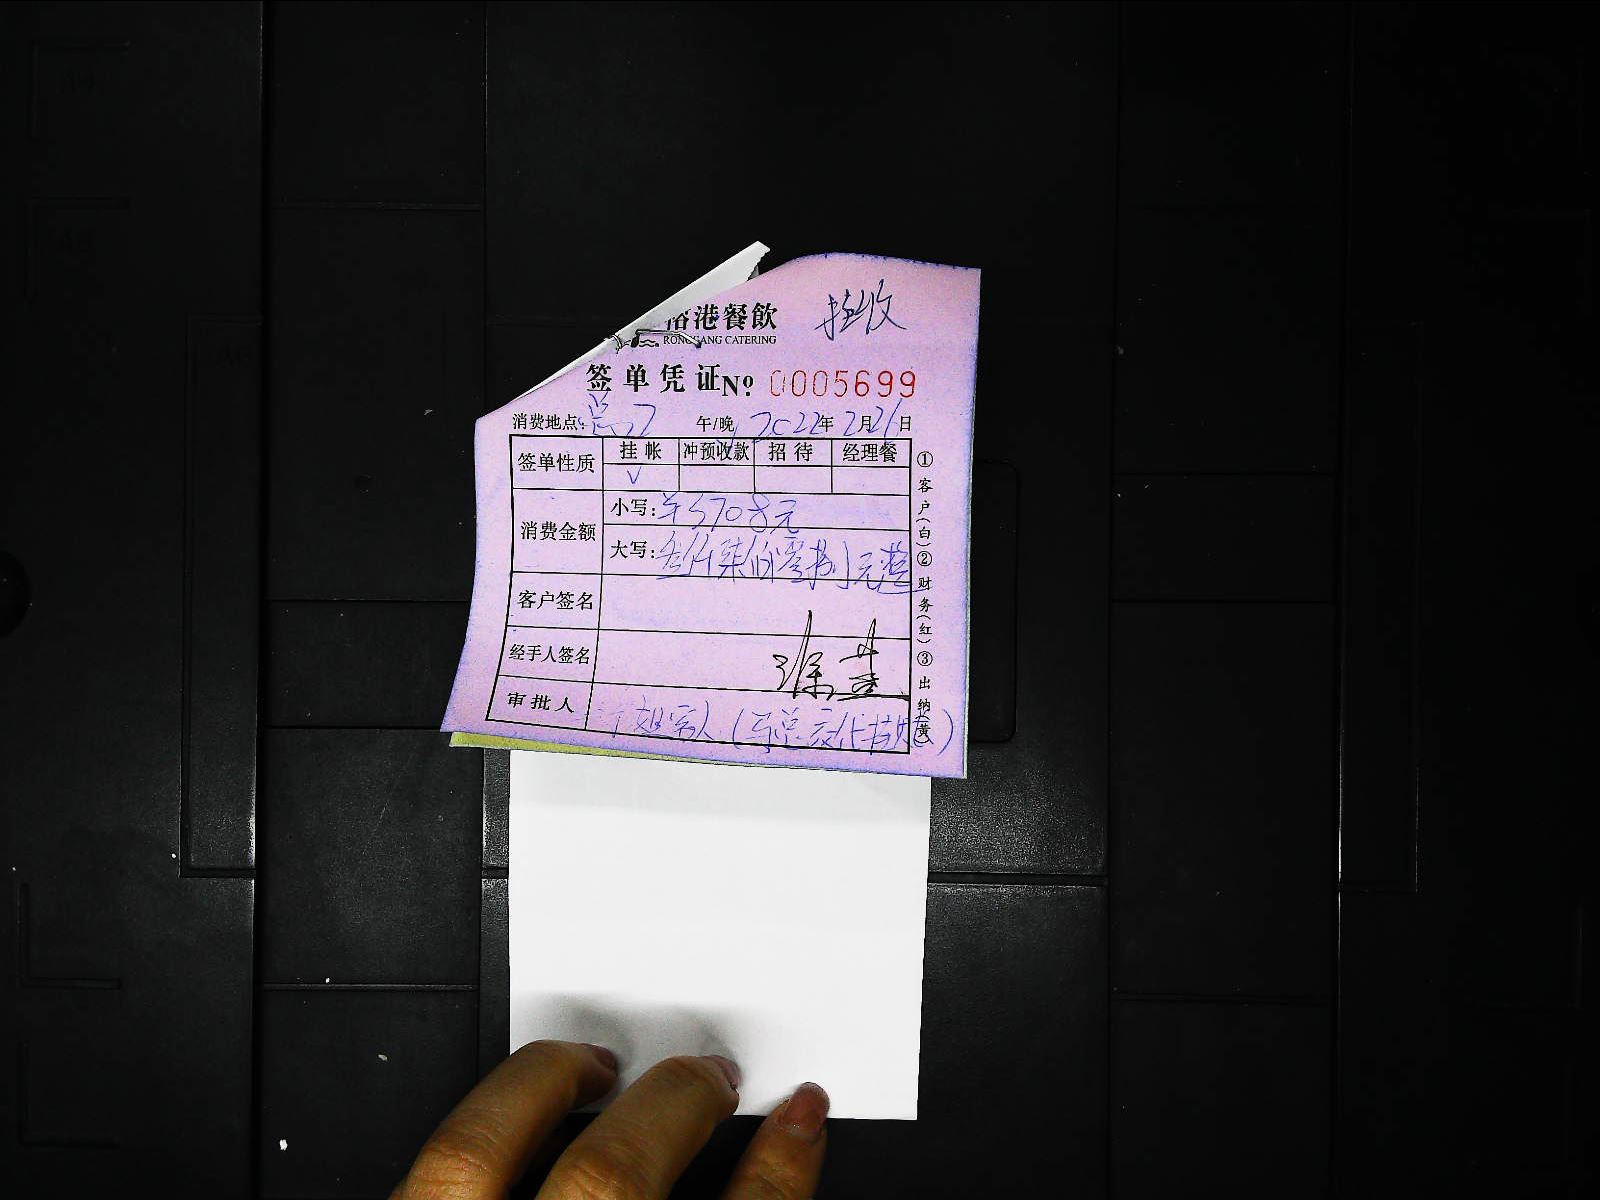 挂收
港餐飲
RONGGANG CATERING
签单凭证 № 0005699
消费地点: 午/晚 2022年2月21日
签单性质 挂帐 冲预收款 招待 经理餐
√
消费金额 小写: ¥5708元
大写: 伍仟柒佰零捌元整
客户签名
经手人签名
审批人
①客户(白)②财务(红)③出纳(黄)